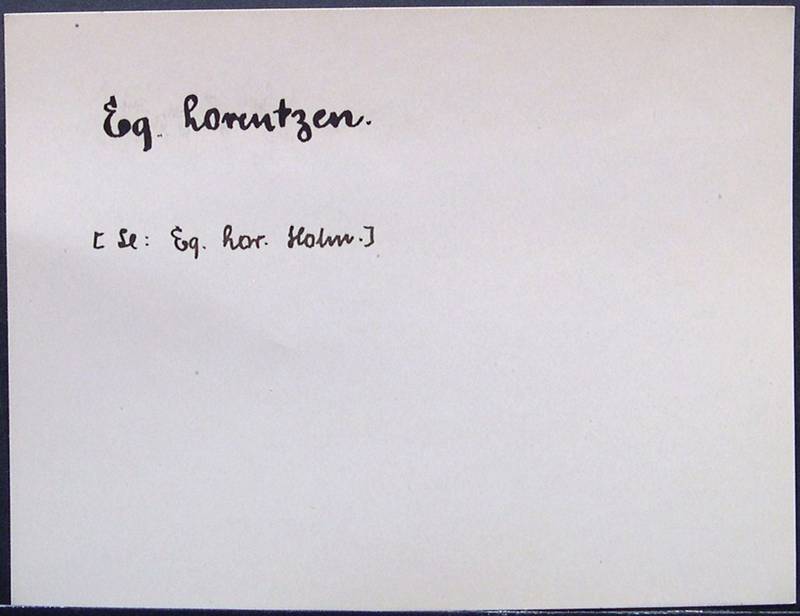 Eg. Lorentzen.
[Se: Eg. Lor. Holm.]